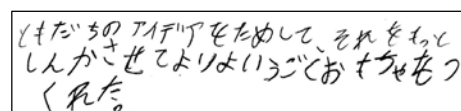 ともだちのアイデアをためして、それをもっと
しんかさせてよりよいうごくおもちゃをつ
くれた。